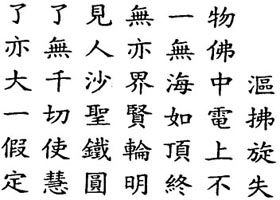 了了見無一物
亦無人亦無佛
大千沙界海中漚
一切聖賢如電拂
假使鐵輪頂上旋
定慧圓明終不失